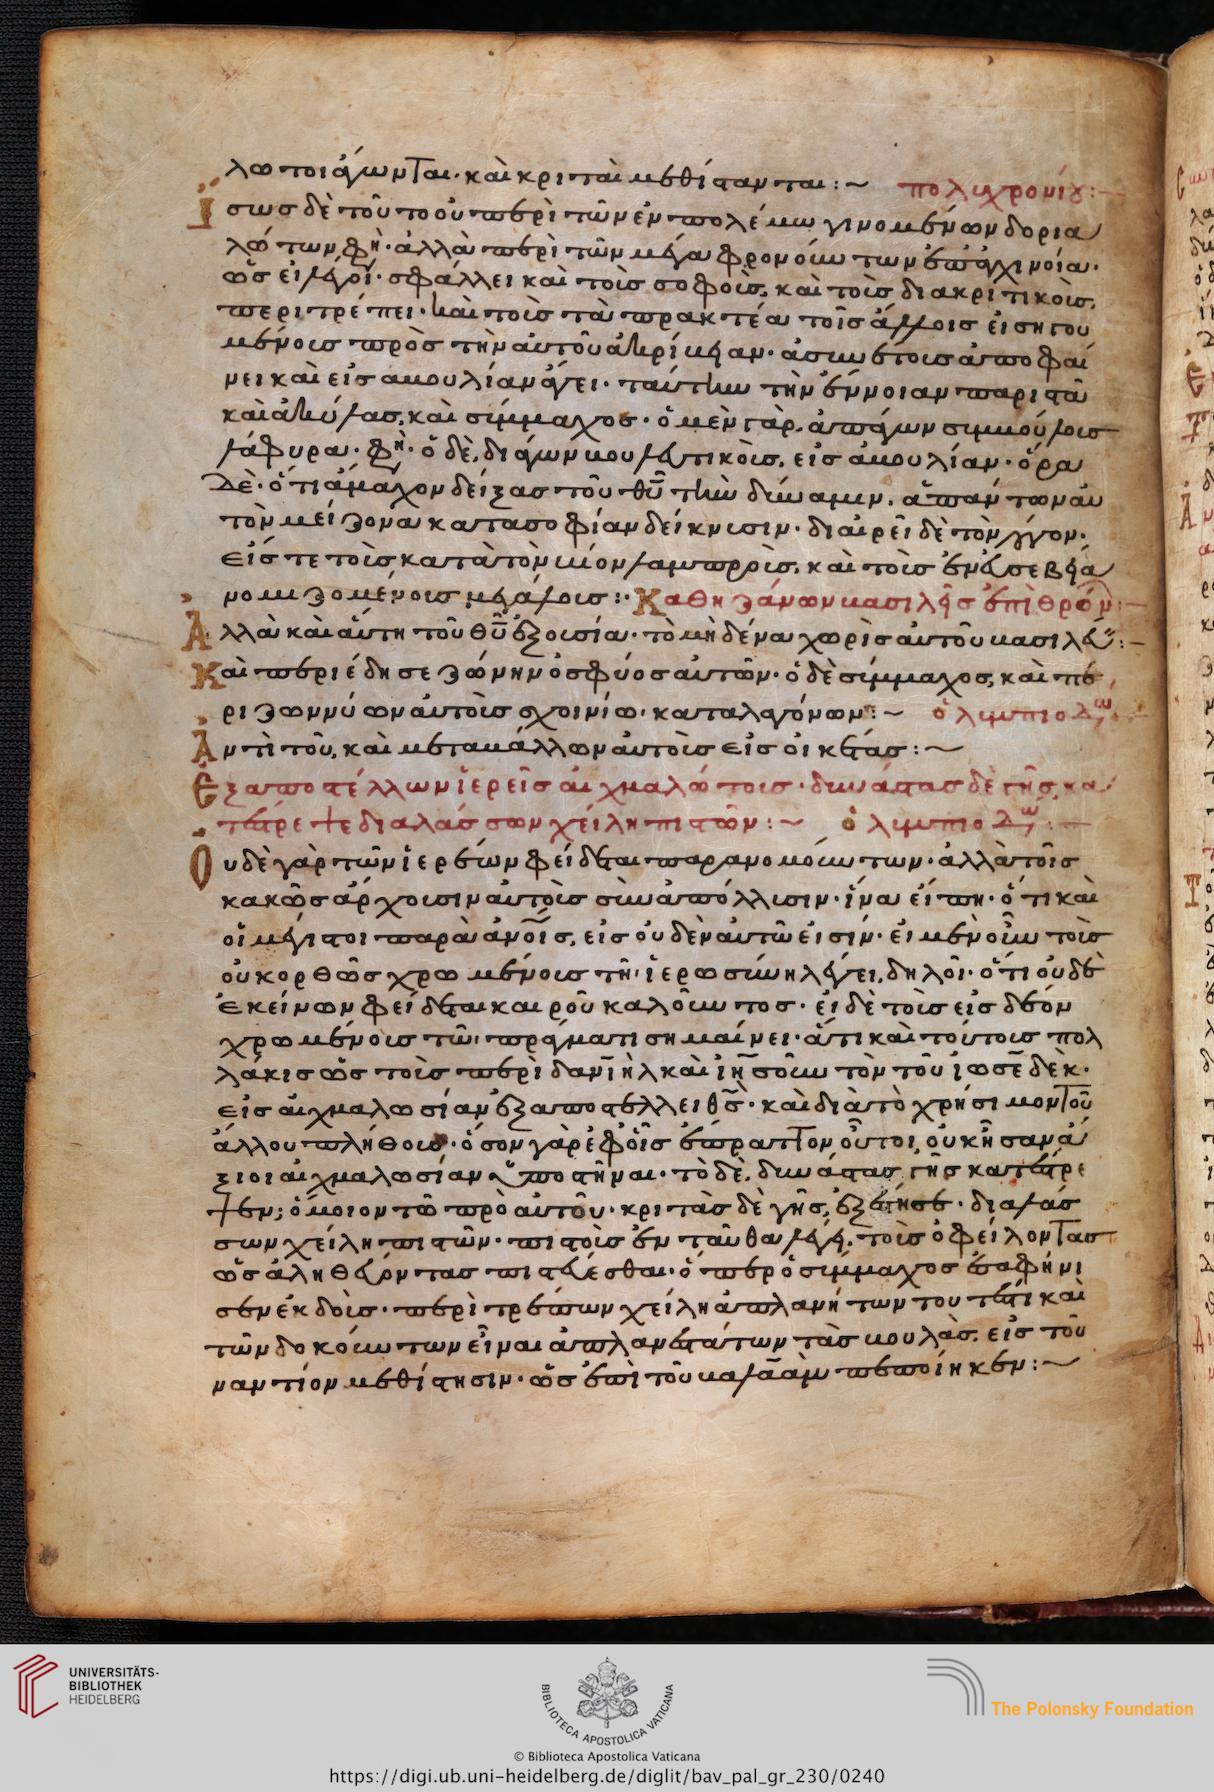 λωτοι ἄγωνται· καὶ κριταὶ μεθίστανται :~ πολυχρονίου :
Ἴσως δὲ τοῦτο οὐ περὶ τῶν ἐν πολέμω γινομένων δορια
λώτων φη· ἀλλὰ περὶ τῶν μέγα φρονούντων ἐπ' ἀγχινοία·
σφάλλει καὶ τοῖς σοφοῖς, καὶ τοῖς διακριτικοῖς,
περιτρέπει· καὶ τοῖς τὰ πρακτέα τοῖς ἄλλοις εἰσηγου
μένοις πρὸς τὴν αὐτοῦ ἀκρίβειαν· ἀσυνέτους ἀποφαί
νει καὶ εἰς αβουλίαν ἄγει· ταύτην τὴν ἔννοιαν παριστᾶ
καὶ ἀκύλας, καὶ σύμμαχος· ὁ μὲν γὰρ, ἀπάγων συμβούλους
λάφυρα· φη· ὁ δὲ, διάγων βουλευτικοὺς, εἰς ἀβουλίαν· ὅρα
δὲ· ὅτι ἄμαχον δείξας τοῦ θυ τὴν δύναμιν, ἁπάντων αυ
τὸν μείζονα κατασοφίαν δείκνυσιν· διαιρεῖ δὲ τὸν λόγον·
εἴς τε τοῖς κατὰ τὸν βίον λαμπροῖς, καὶ τοῖς ἐν εὐσεβεία
νομιζομένοις μεγάλοις :· Καθηζάνων βασιλεῖς ἐπὶ θρόν :
Ἀλλὰ καὶ αὕτη τοῦ θυ ἐξουσία· τὸ μηδένα χωρὶς αὐτοῦ βασιλεύ :
Καὶ περιέδησε ζώνην ὀσφύος αὐτῶν· ὁ δὲ σύμμαχος, καὶ πε
ριζωννύων αὐτοῖς σχοινίω· καταλεγόνων :~ ὀλυμπιοδω
Ἀντὶ τοῦ, καὶ μεταβάλλων αὐτοῖς εἰς οἰκέτας :~
Ἐξαποστέλλων ἱερεῖς αἰχμαλώτους· δυνάστας δὲ γῆς, κα
τέστρεψε διαλάσσων χείλη πιστῶν :~ ὀλυμπιοδω :
Οὐδὲ γὰρ τῶν ἱερέων φείδεται παρανομούντων· ἀλλὰ τοῖς
κακῶς ἄρχουσιν αὐτοῖς συναπόλλυσιν· ἵνα εἴπη· ὅτι καὶ
οἱ μέγιστοι παρὰ ἀνοις, εἰς οὐδὲν αὐτῶ εἰσίν· εἰ μὲν οὖν τοῖς
οὐκ ορθῶς χρωμένοις τῆ ἱερωσύνη λέγει, δηλοῖ· ὅτι οὐδὲ
ἐκείνων φείδεται καιροῦ καλοῦντος· εἰ δὲ τοῖς εἰς δέον
χρωμένοις τῶ πράγματι σημαίνει· ὅτι καὶ τούτους πολ
λάκις ὡς τοῖς περὶ δανιὴλ καὶ ἰησοῦν τὸν τοῦ ἰωσεδὲκ·
εἰς αἰχμαλωσίαν ἐξαποστέλλει θς· καὶ διὰ τὸ χρήσιμον τοῦ
ἄλλου πλήθους· ὅσον γὰρ ἐφ' οἷς ἔπραττον οὗτοι, οὐκ ἦσαν ἄ
ξιοι αἰχμαλωσίαν ὑποστῆναι· τὸ δὲ, δυνάστας γῆς κατέστρε
ψεν; ὅμοιον τῶ πρὸ αὐτοῦ· κριτὰς δὲ γῆς, ἐξέστησε· διαλάσ
σων χείλη πιστῶν· πιστοὺς ἐν ταῦθα λέγει, τοῖς ὀφείλοντας
ὡς ἀληθεύοντας πιστεύεσθαι· ὅπερ ὁ σύμμαχος ἐσαφήνι
σεν ἐκδοὺς· περιτρέπων χείλη ἀπλανήτων τουτέστι καὶ
τῶν δοκούντων εἶναι ἀπλανεστάτων τὰς βουλὰς, εἰς τοῦ
ναντίον μεθίστησιν· ὡς ἐπὶ τοῦ βαλαὰμ πεποίηκεν :~
UNIVERSITÄTS-
BIBLIOTHEK
HEIDELBERG
BIBLIOTECA APOSTOLICA VATICANA
The Polonsky Foundation
© Biblioteca Apostolica Vaticana
https://digi.ub.uni-heidelberg.de/diglit/bav_pal_gr_230/0240